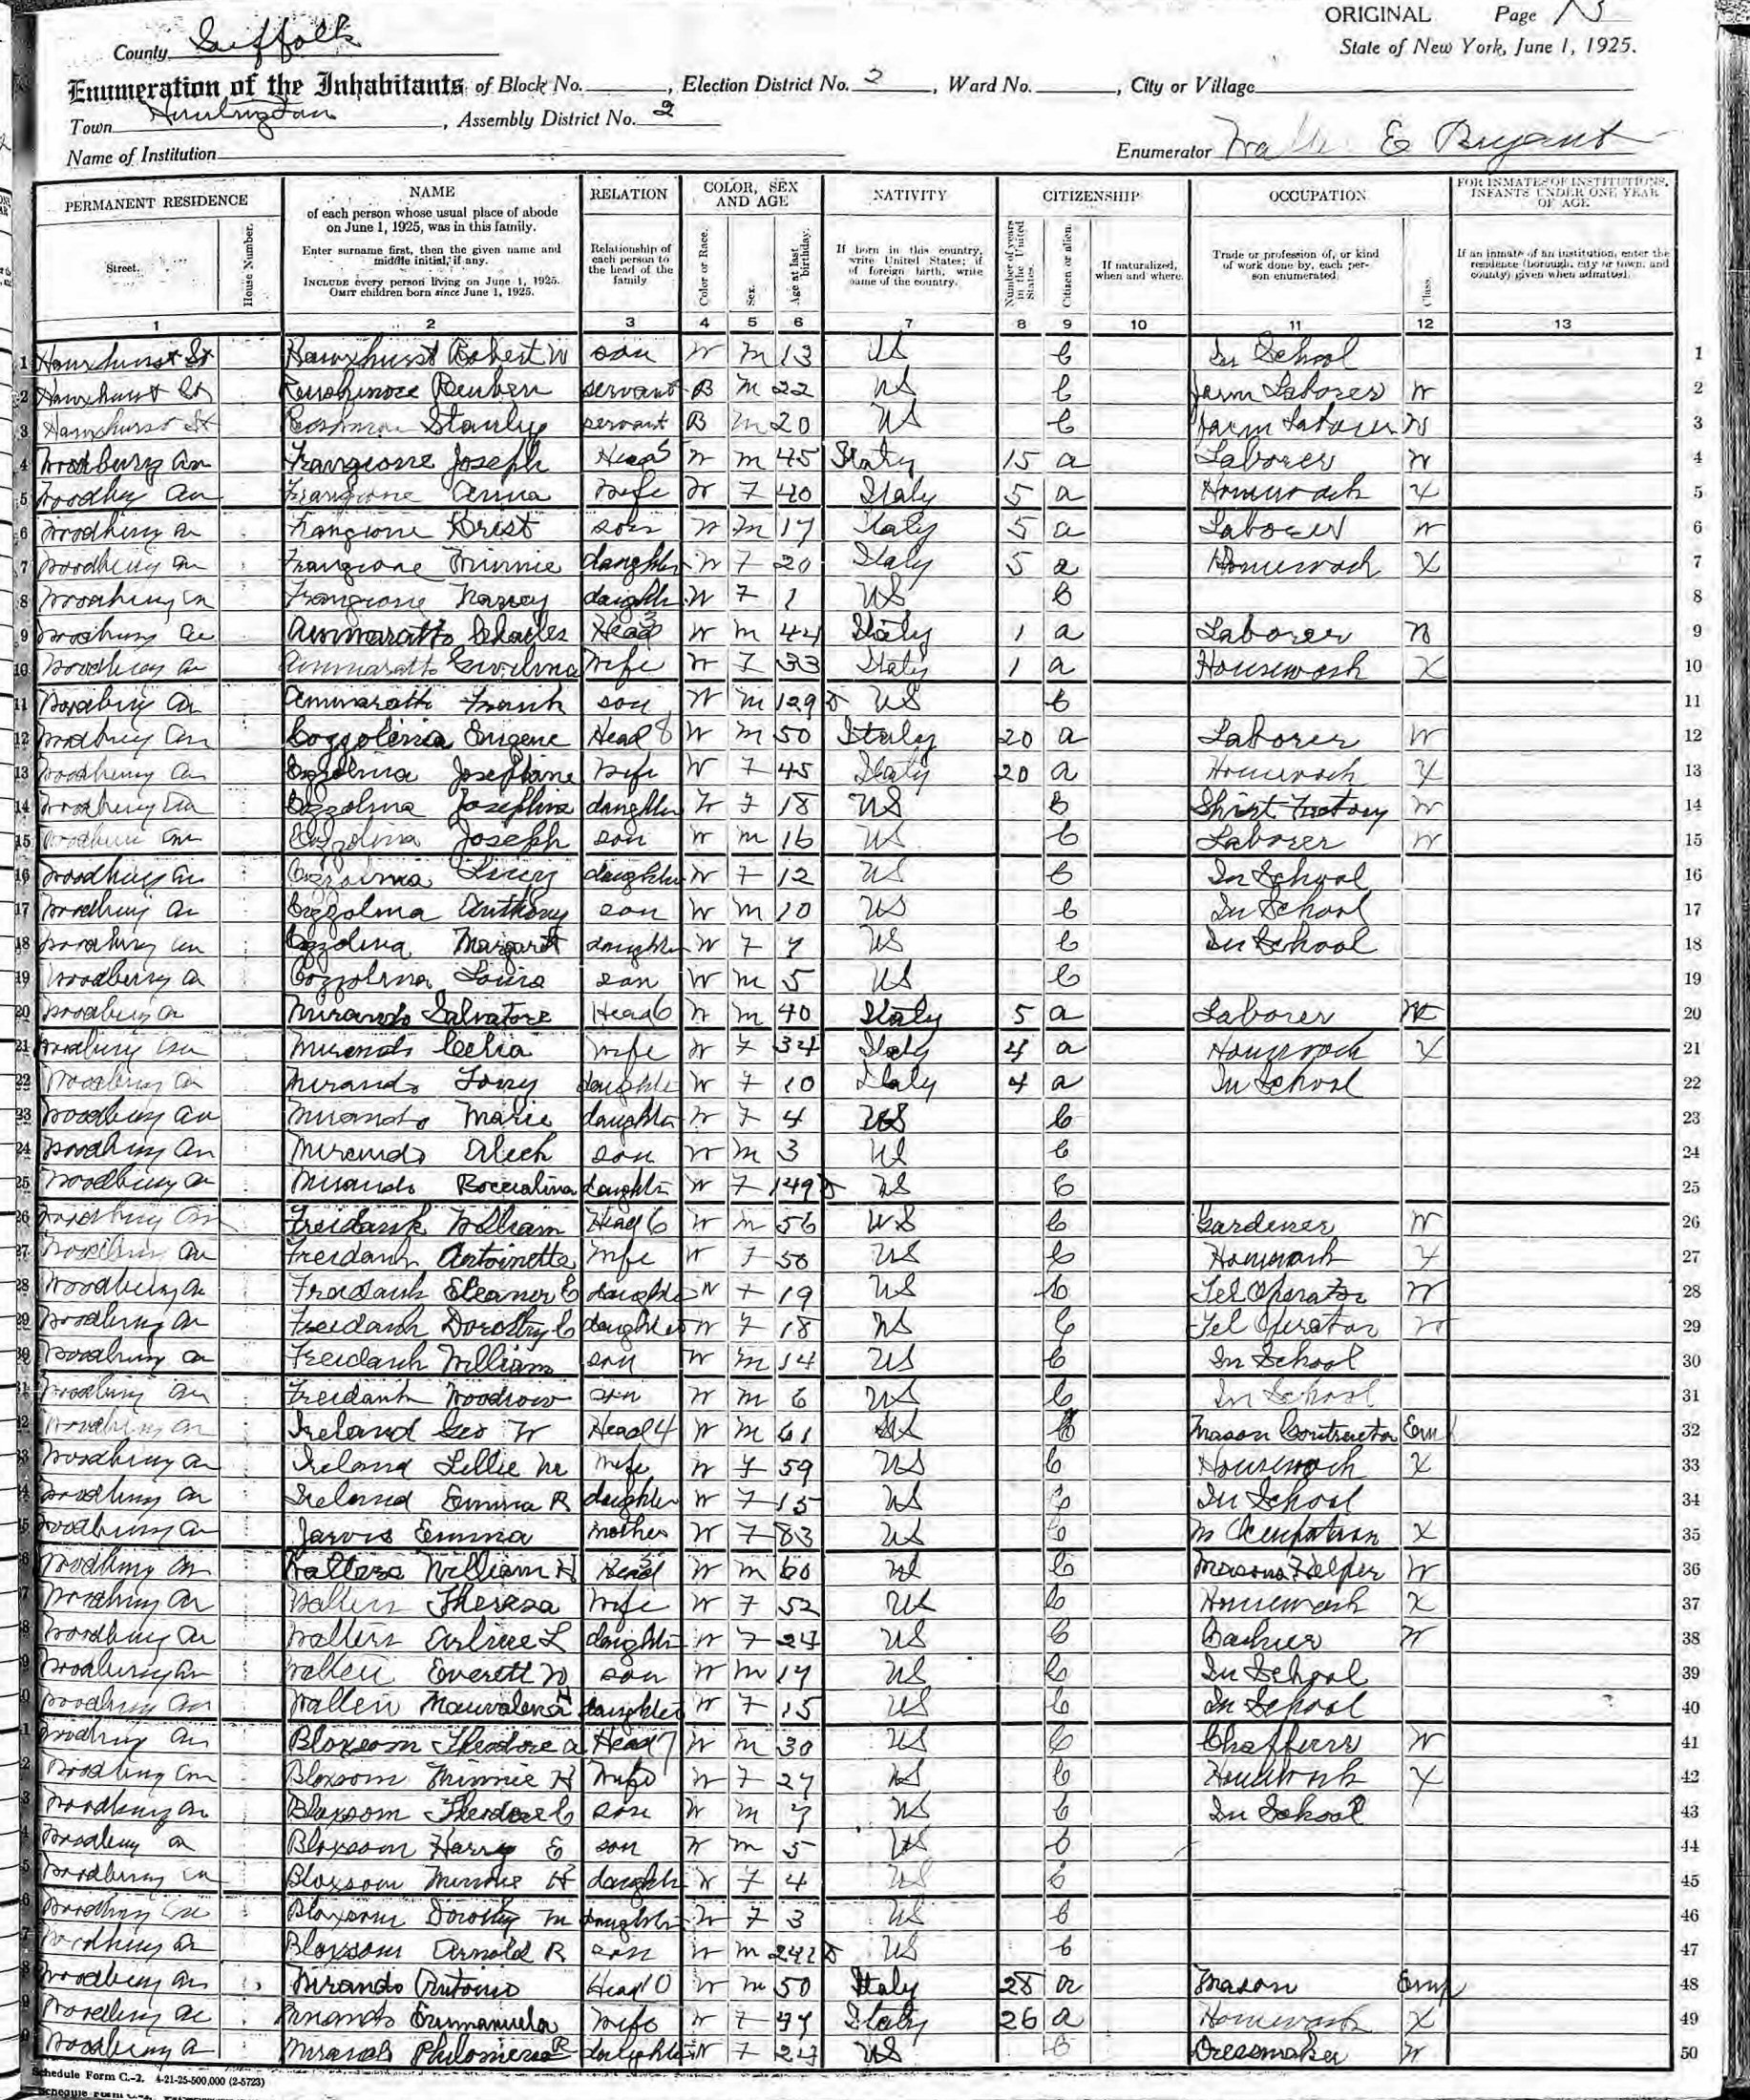 ORIGINAL Page 13
County Suffolk State of New York, June 1, 1925.
Enumeration of the Inhabitants of Block No. , Election District No. 2 , Ward No. , City or Village
Town Huntington , Assembly District No. 2
Name of Institution Enumerator Walter E Bryant
PERMANENT RESIDENCE
Street.
House Number.
1
NAME
of each person whose usual place of abode on June 1, 1925, was in this family.
Enter surname first, then the given name and middle initial, if any.
INCLUDE every person living on June 1, 1925.
OMIT children born since June 1, 1925.
2
RELATION
Relationship of each person to the head of the family
3
COLOR, SEX AND AGE
Color or Race.
4
Sex.
5
Age at last birthday.
6
NATIVITY
If born in this country, write United States; if of foreign birth, write name of the country.
7
CITIZENSHIP
Number of years in the United States.
8
Citizen or alien.
9
If naturalized, when and where.
10
OCCUPATION
Trade or profession of, or kind of work done by, each person enumerated.
11
Class.
12
FOR INMATES OF INSTITUTIONS, INFANTS UNDER ONE YEAR OF AGE
If an inmate of an institution, enter the residence (borough, city or town, and county) given when admitted.
13
1 Hawxhurst St Hawxhurst Robert W son W m 13 US C In School 1
2 Hawxhurst St Reuben servant B m 22 US C Farm Laborer W 2
3 Hawxhurst St Stanley servant B m 20 US C Farm Laborer W 3
4 Woodbury av Frangione Joseph Head 5 W m 45 Italy 15 a Laborer W 4
5 Woodbury av Frangione Anna Wife W F 40 Italy 5 a Housework X 5
6 Woodbury av Frangione Krist son W m 17 Italy 5 a Laborer W 6
7 Woodbury av Frangione Minnie daughter W F 20 Italy 5 a Housework X 7
8 Woodbury av Frangione Nancy daughter W F 1 US C 8
9 Woodbury av Ammaratto Charles Head 3 W m 44 Italy 1 a Laborer W 9
10 Woodbury av Ammaratto Wife W F 33 Italy 1 a Housework X 10
11 Woodbury av Ammaratto Frank son W m US C 11
12 Woodbury av Cozzolina Eugene Head 8 W m 50 Italy 20 a Laborer W 12
13 Woodbury av Cozzolina Josephine Wife W F 45 Italy 20 a Housework X 13
14 Woodbury av Cozzolina Josephine daughter W F 18 US C Shirt Factory W 14
15 Woodbury av Cozzolina Joseph son W m 16 US C Laborer W 15
16 Woodbury av Cozzolina Lucy daughter W F 12 US C In School 16
17 Woodbury av Cozzolina Anthony son W m 10 US C In School 17
18 Woodbury av Cozzolina Margaret daughter W F 7 US C In School 18
19 Woodbury av Cozzolina Louis son W m 5 US C 19
20 Woodbury av Mirando Salvatore Head 6 W m 40 Italy 5 a Laborer W 20
21 Woodbury av Mirando Celia Wife W F 34 Italy 4 a Housework X 21
22 Woodbury av Mirando daughter W F 10 Italy 4 a In School 22
23 Woodbury av Mirando Marie daughter W F 4 US C 23
24 Woodbury av Mirando Aleck son W m 3 US C 24
25 Woodbury av Mirando daughter W F US C 25
26 Woodbury av Freidank William Head 6 W m 56 US C Gardener W 26
27 Woodbury av Freidank Antoinette Wife W F 50 US C Housework X 27
28 Woodbury av Freidank Eleanor E daughter W F 19 US C Tel Operator W 28
29 Woodbury av Freidank Dorothy C daughter W F 18 US C Tel Operator W 29
30 Woodbury av Freidank William son W m 14 US C In School 30
31 Woodbury av Freidank Woodrow son W m 6 US C In School 31
32 Woodbury av Ireland Geo W Head 4 W m 61 US C Mason Contractor Em 32
33 Woodbury av Ireland Lillie M Wife W F 59 US C Housework X 33
34 Woodbury av Ireland Emma R daughter W F 15 US C In School 34
35 Woodbury av Jarvis Emma mother W F 83 US C No Occupation X 35
36 Woodbury av Walters William H Head W m 60 US C Masons Helper W 36
37 Woodbury av Walters Theresa Wife W F 52 US C Housework X 37
38 Woodbury av Walters Arline L daughter W F 24 US C Cashier W 38
39 Woodbury av Walters Everett W son W m 17 US C In School 39
40 Woodbury av Walters daughter W F 15 US C In School 40
41 Woodbury av Bloxsom Theodore a Head 7 W m 30 US C Chaffeur W 41
42 Woodbury av Bloxsom Minnie H Wife W F 27 US C Housework X 42
43 Woodbury av Bloxsom Theodore C son W m 7 US C In School 43
44 Woodbury av Bloxsom Harry E son W m 5 US C 44
45 Woodbury av Bloxsom Minnie H daughter W F 4 US C 45
46 Woodbury av Bloxsom Dorothy M daughter W F 3 US C 46
47 Woodbury av Bloxsom Arnold R son W m US C 47
48 Woodbury av Mirando Antonio Head 10 W m 50 Italy 28 a Mason Emp 48
49 Woodbury av Mirando Emmanuela Wife W F 47 Italy 26 a Housework X 49
50 Woodbury av Mirando Philomena R daughter W F 23 US C Dressmaker W 50
Schedule Form C.-2. 4-21-25-500,000 (2-5723)